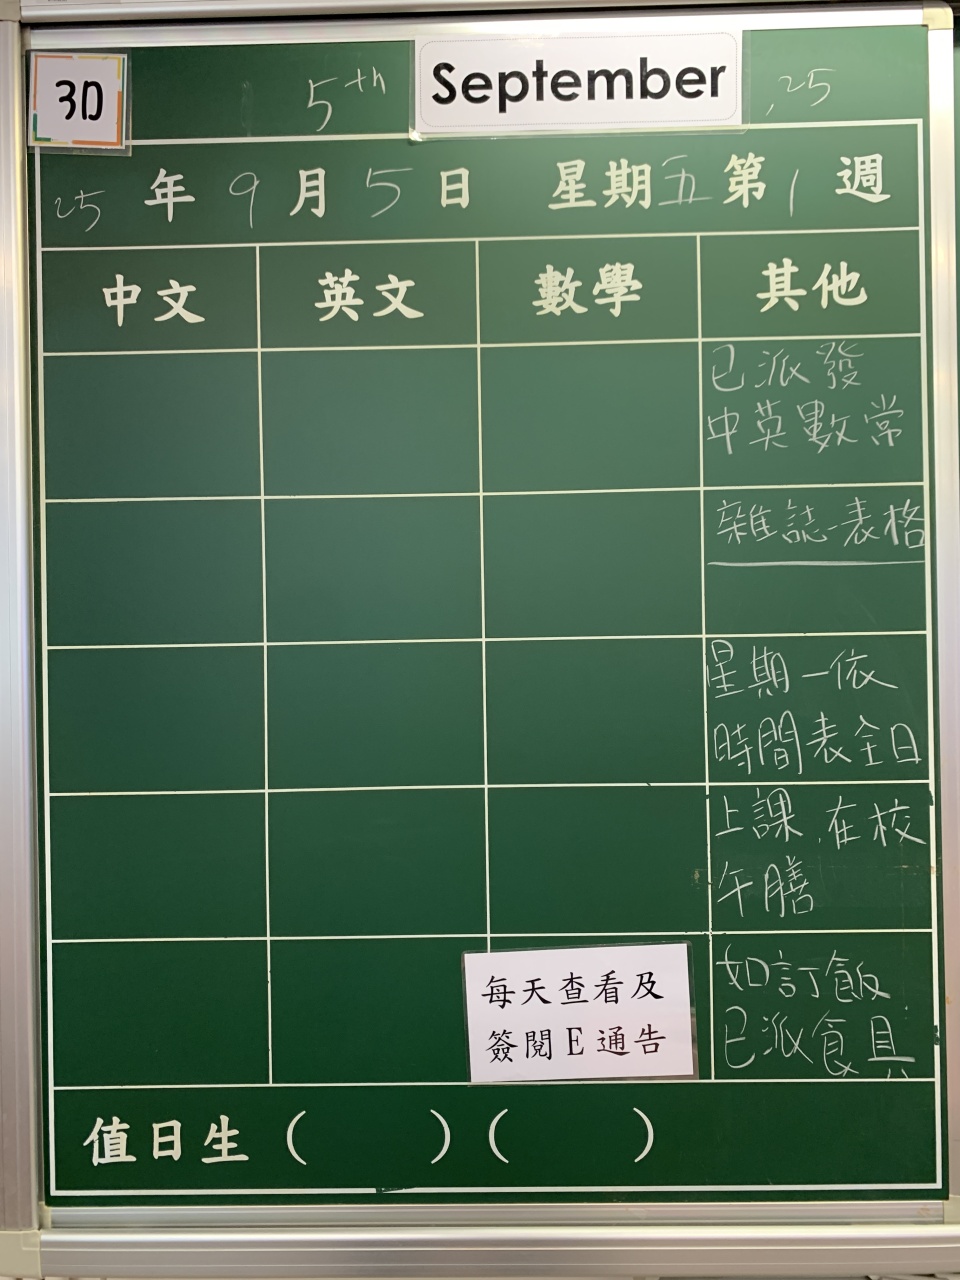 3D
5th September, 25
25年9月5日 星期五第1週
中文 英文 數學 其他
已派發
中英數常
雜誌表格
星期一依
時間表全日
上課,在校
午膳
如訂飯
已派食具
每天查看及
簽閱E通告
值日生( )( )